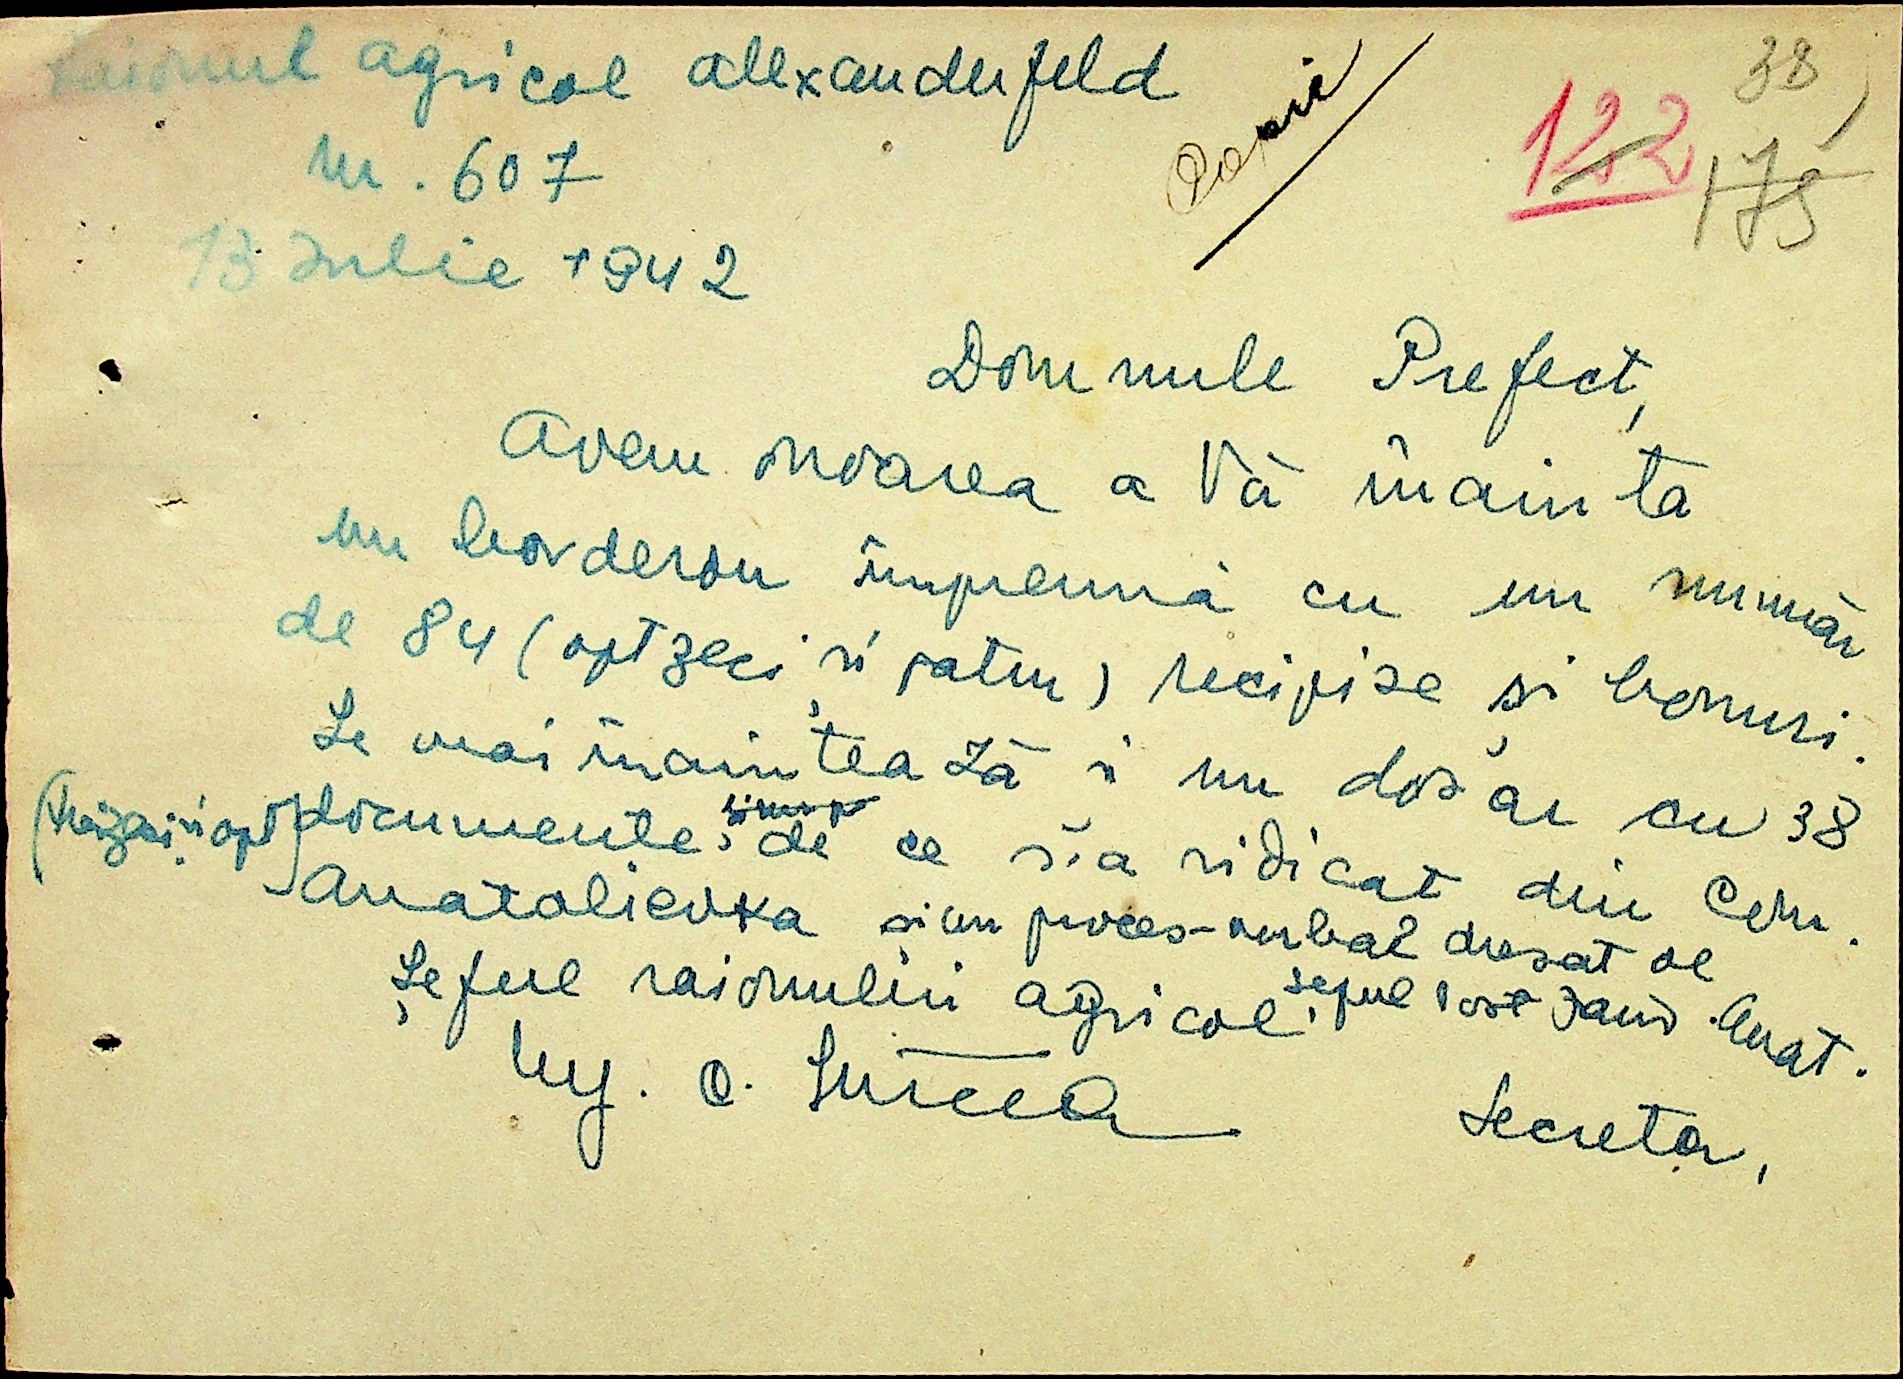 Raionul agricol Alexanderfeld
Nr. 607
13 Iulie 1942
Copie
38
122
175
Domnule Prefect,
Avem onoarea a Vă înainta
un borderou împreună cu un număr
de 84 (optzeci și patru) recipise și bonuri.
Se mai înaintează și un dosar cu 38
(treizeci și opt) documente, de ce s'a ridicat din Com.
Anatolievka și un proces-verbal dresat de
șeful post Jand. Anat.
Șeful raionului agricol,
Ing. C.
Secretar,